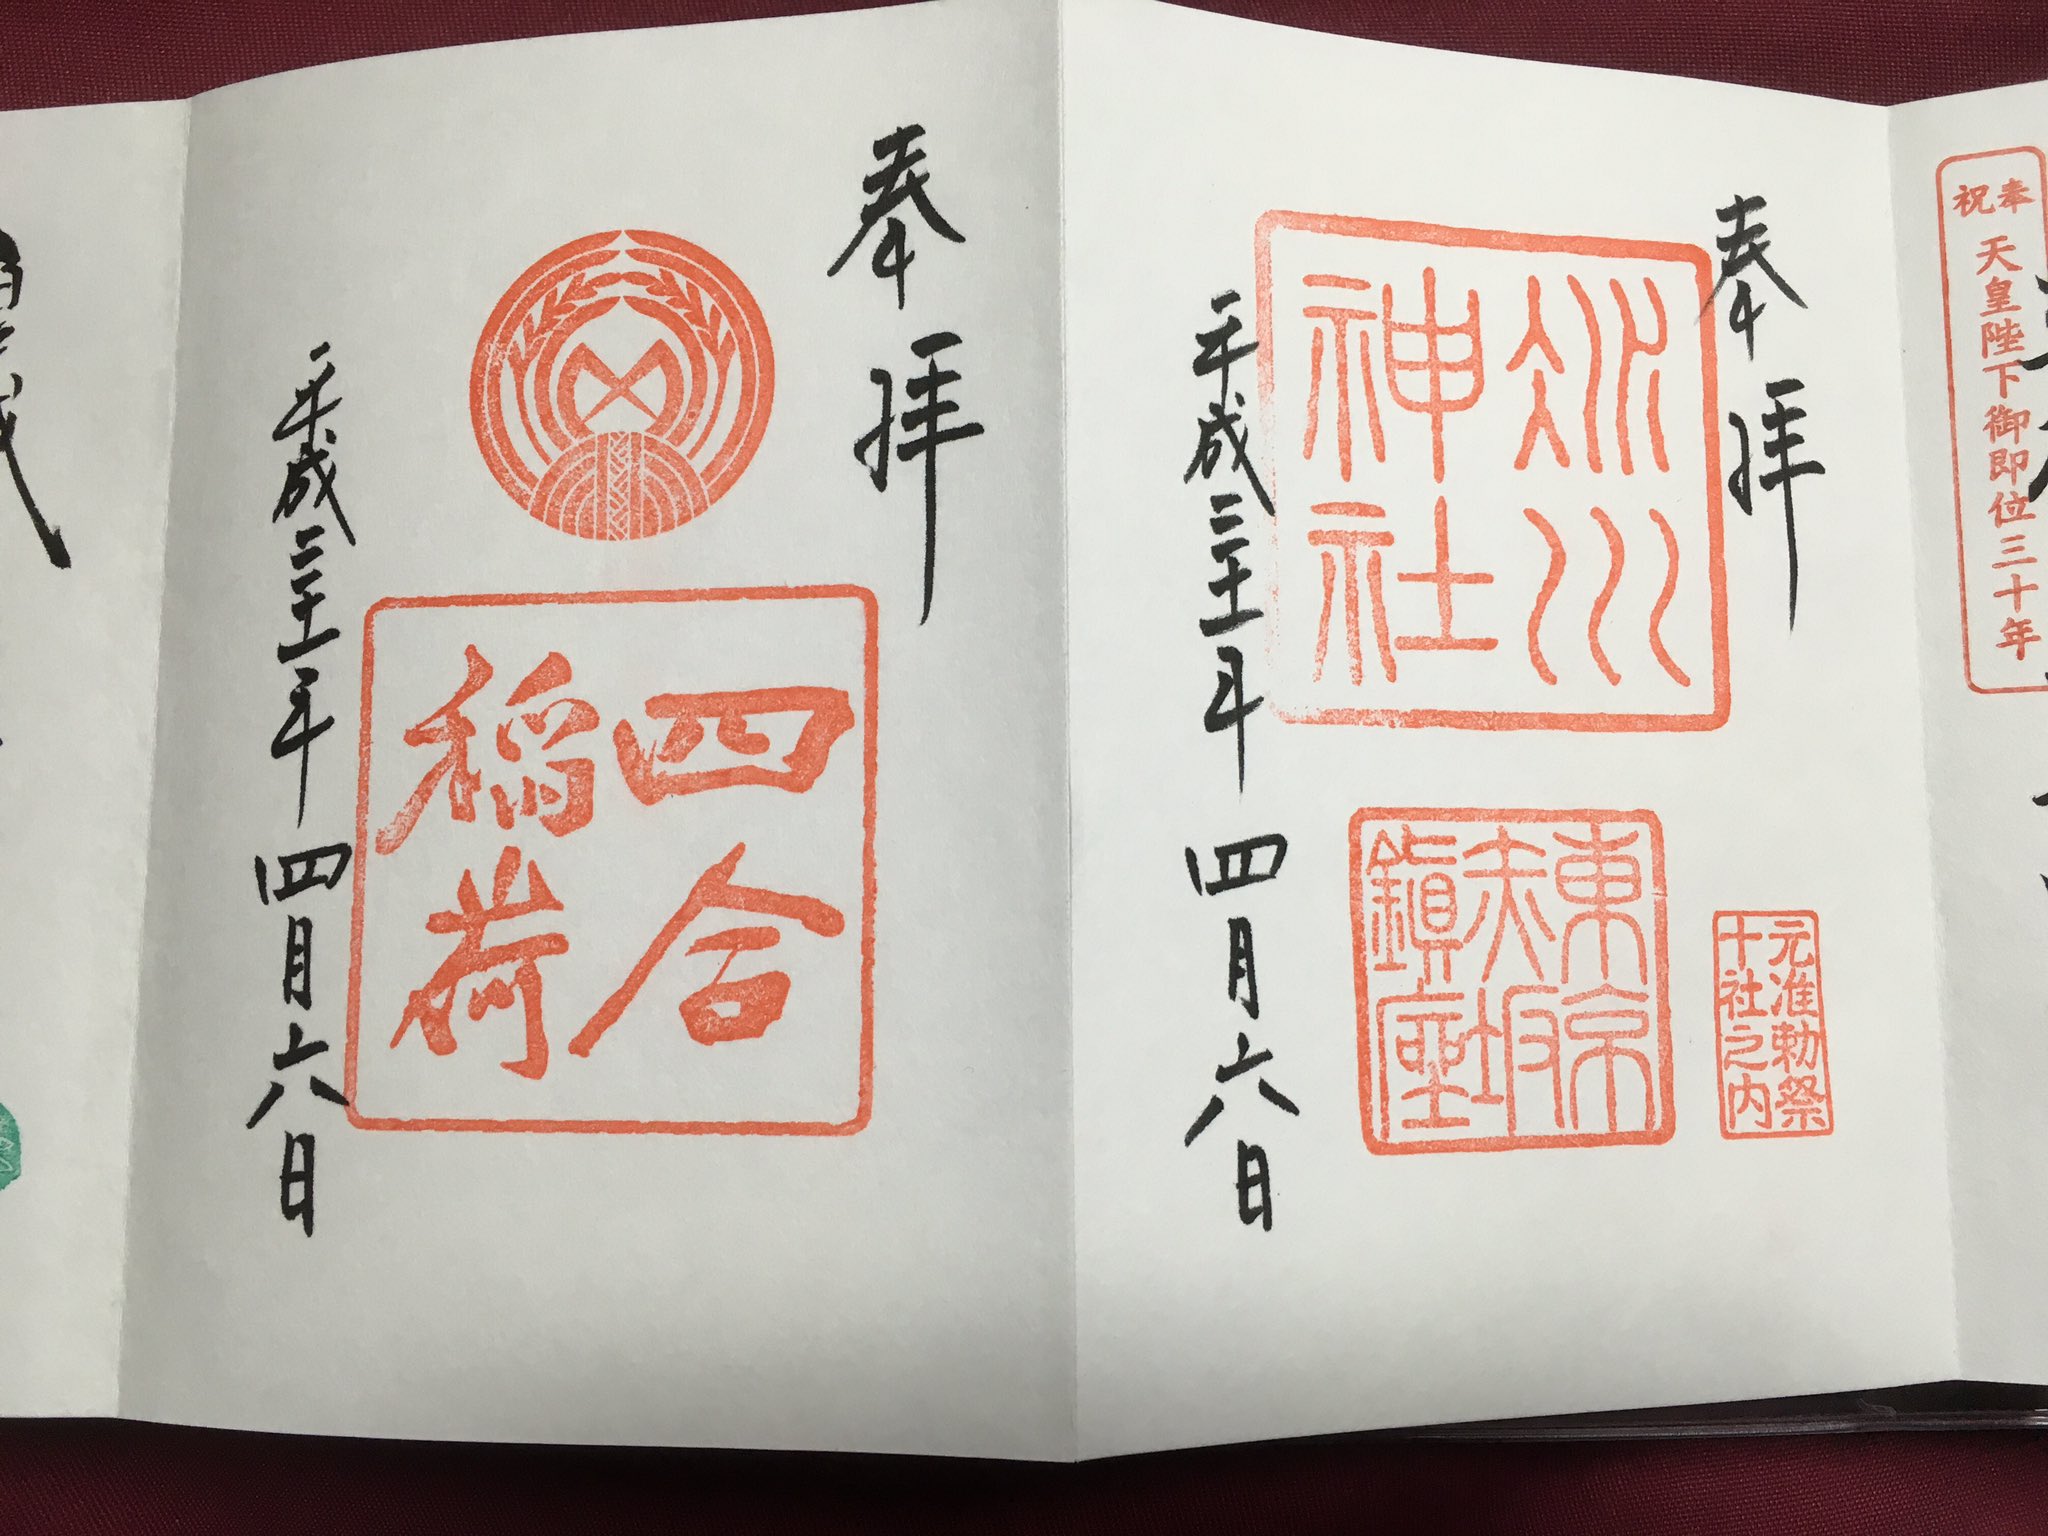 奉祝
天皇陛下御即位三十年
奉拝
氷川
神社
東京
赤坂
鎮座
元准勅祭
十社之内
平成三十一年四月六日
奉拝
四合
稲荷
平成三十一年四月六日